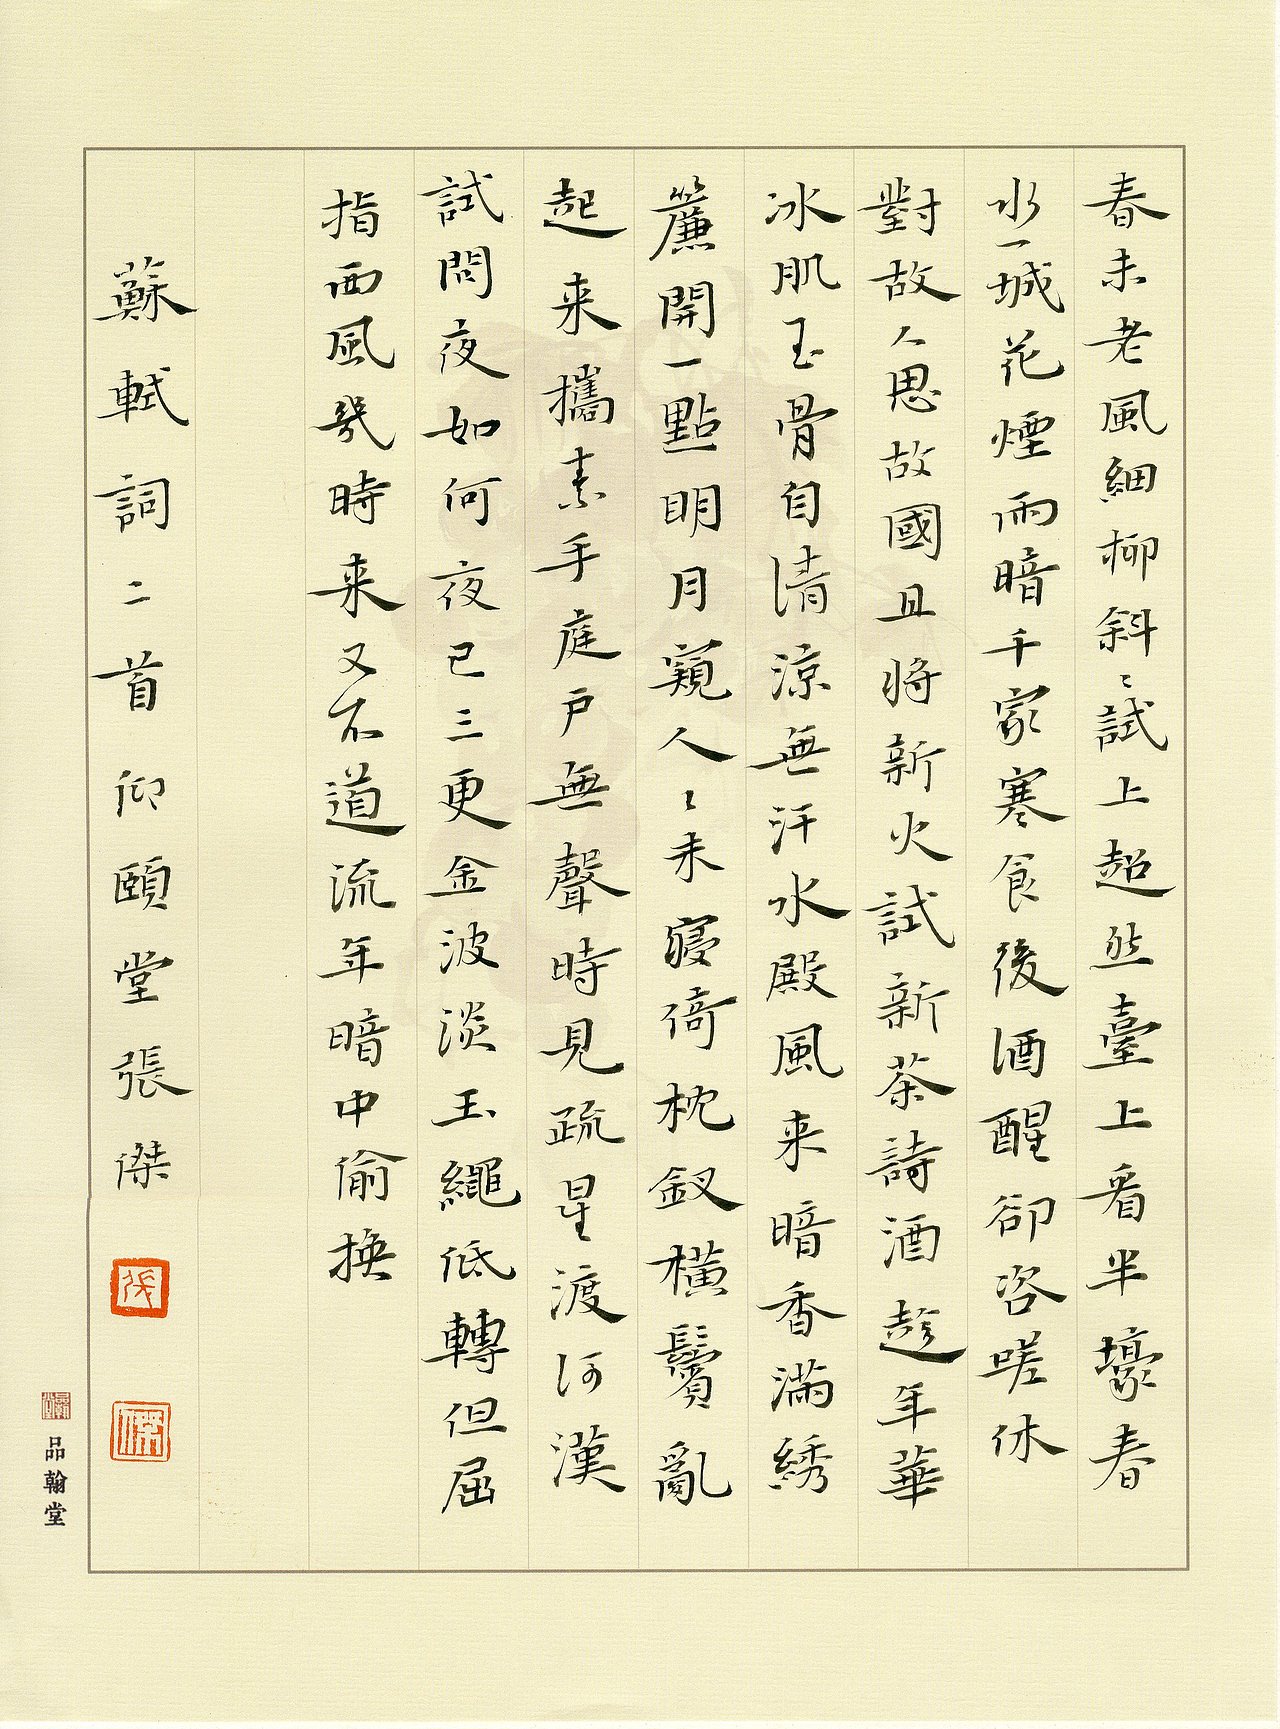 春未老風細柳斜〻試上超然臺上看半壕春
水一城花煙雨暗千家寒食後酒醒卻咨嗟休
對故人思故國且將新火試新茶詩酒趁年華
冰肌玉骨自清涼無汗水殿風来暗香滿綉
簾開一點明月窺人〻未寢倚枕釵橫鬢亂
起来攜素手庭戶無聲時見疏星渡河漢
試問夜如何夜已三更金波淡玉繩低轉但屈
指西風幾時来又不道流年暗中偷換
蘇軾詞二首仰頤堂張傑
傑
品翰堂